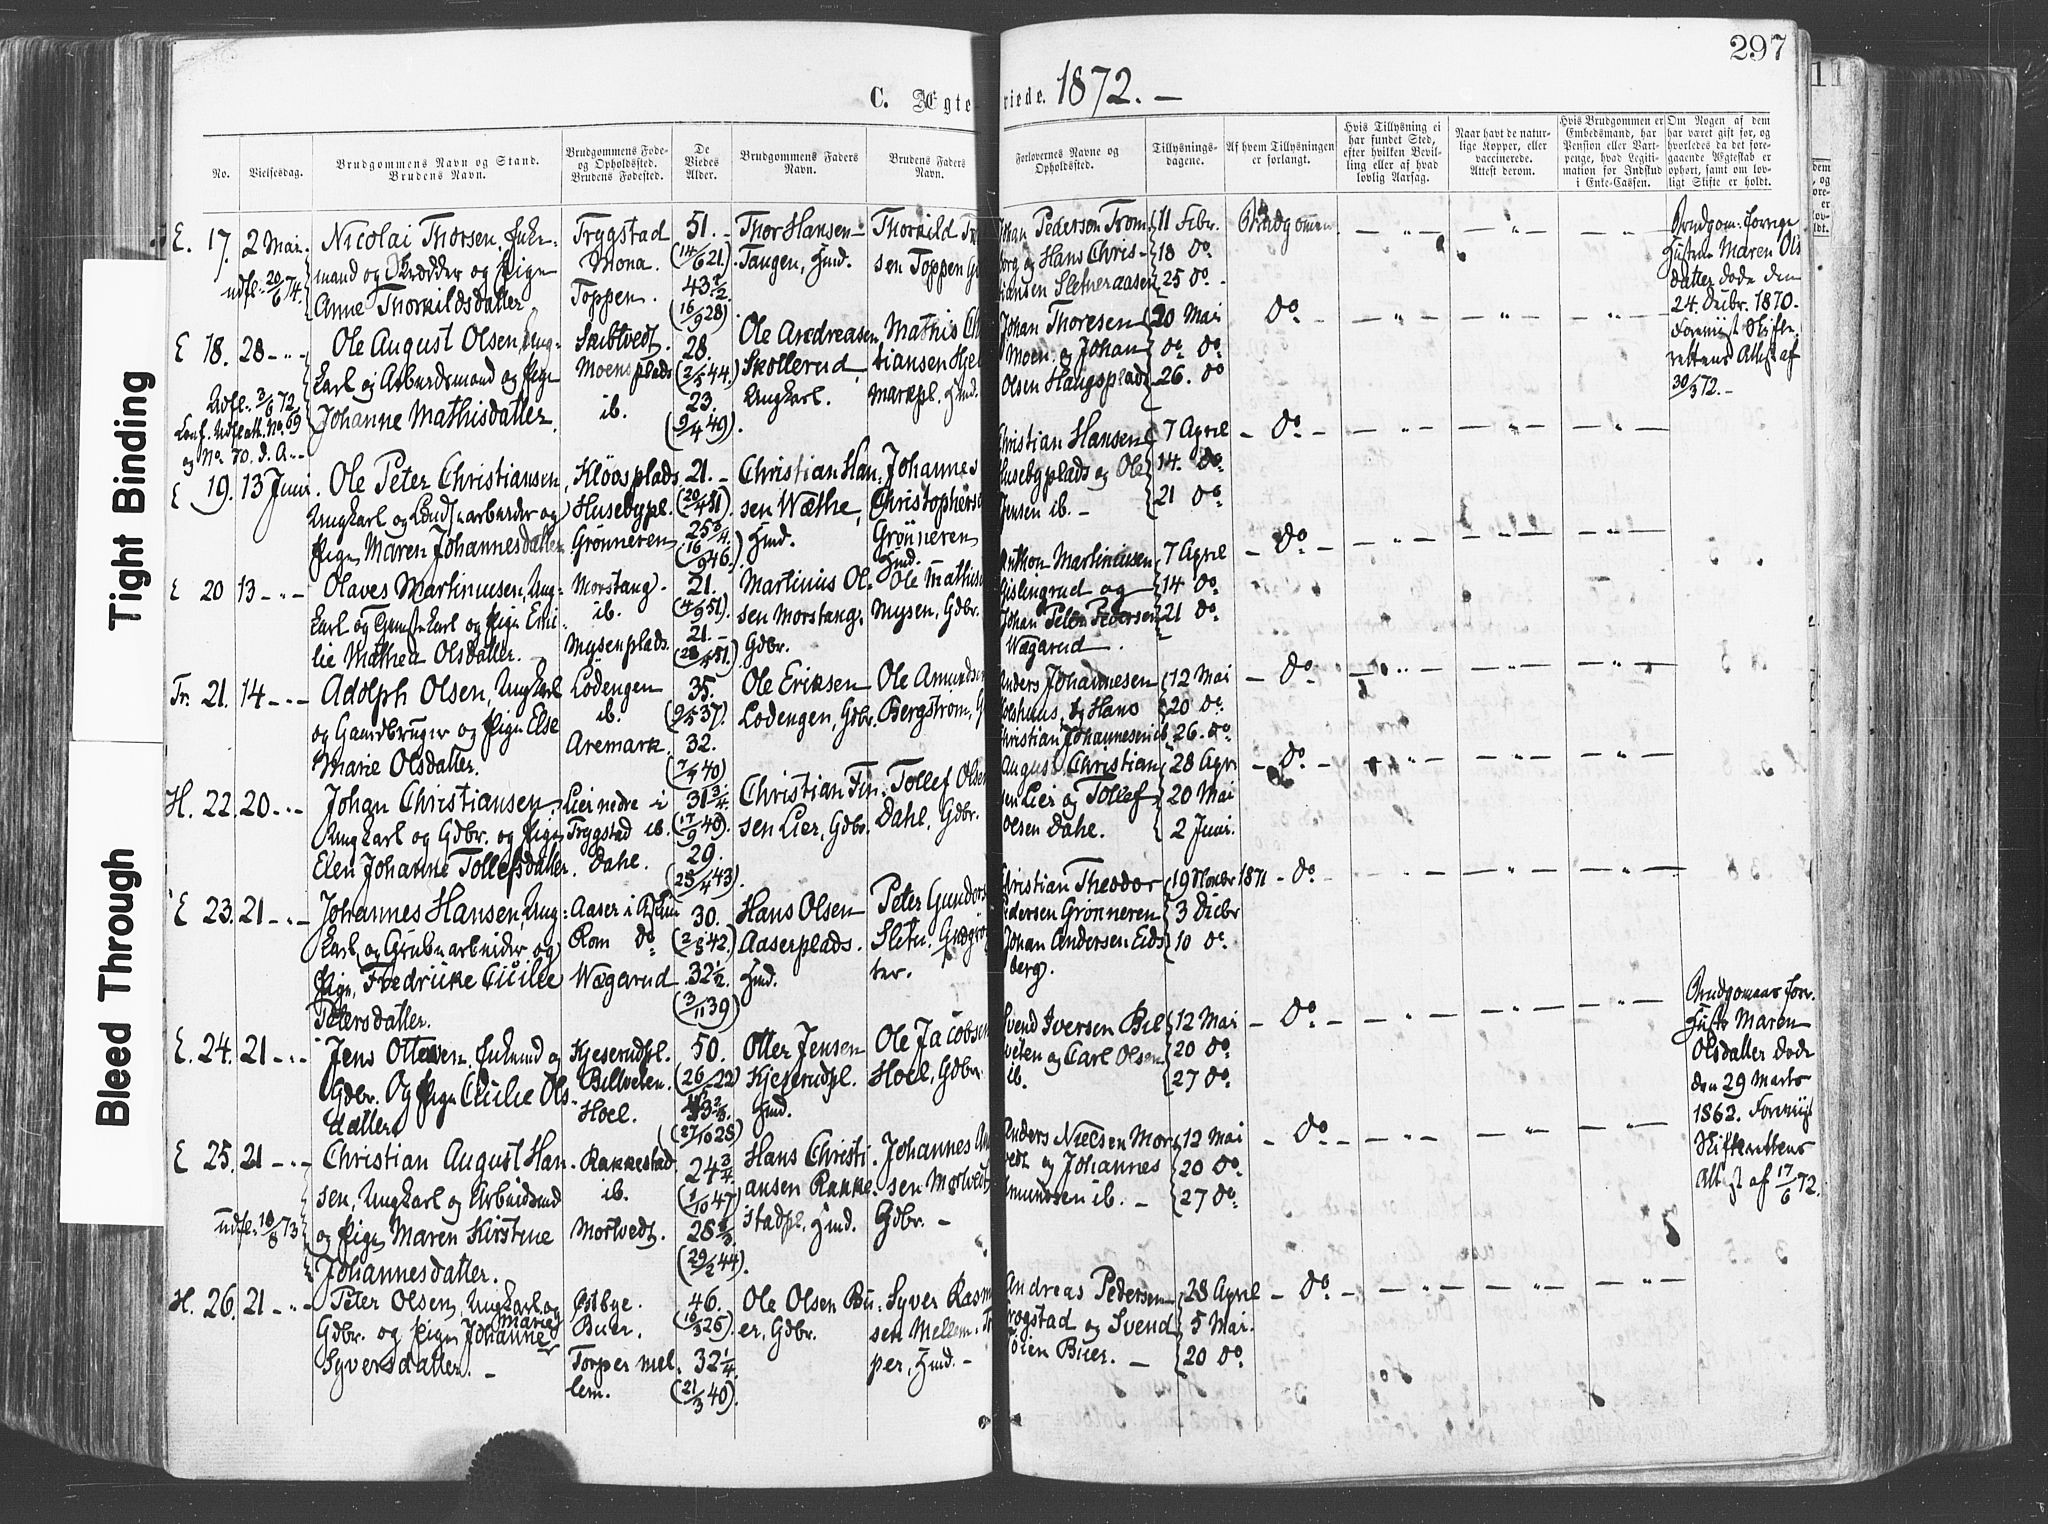 297
11
C. Ægte
viede. 1872. —
No.
Vielsesdag.
Brudgommens Navn og Stand.
Brudens Navn.
Brudgommens Føde-
og Opholdssted.
Brudens Fødested.
De
Viedes
Alder.
Brudgommens Faders
Navn.
Brudens Faders
Navn.
Forlovernes Navne og
Opholdssted.
Tillysnings-
dagene.
Af hvem Tillysningen
er forlangt.
Hvis Tillysning ei
har fundet Sted,
efter hvilken Bevil-
ling eller af hvad
lovlig Aarsag.
Naar havt de natur-
lige Kopper, eller
vaccinerede.
Attest derom.
Hvis Brudgommen er
Embedsmand, har
Pension eller Vart-
penge, hvad Legiti-
mation for Indskud
i Enke-Cassen.
Om Nogen af dem
har været gift før, og
hvorledes da det fore-
gaaende Ægteskab er
ophørt, samt om lov-
ligt Skifte er holdt.
Tight Binding
Bleed Through
E. 17. 2 Mai.
udfl. 20/6 74.
Nicolai Thorsen, Enke-
mand og Skredder og Pige
Anne Thorkildsdatter
Trygstad
Mona.
Toppen.
51. —
(14/6 21).
43 1/2.
(16/9 28)
Thor Hansen
Tangen, Hmd.
Thorkild
sen Toppen
Johan Pedersen Trom
borg og Hans Chris-
tiansen Sletneraasen
11 Febr.
18 do
25 do.
Brudgommen
Brudgom. forrige
Hustru Maren Ols
datter døde den
24. Decbr. 1870.
Foreviist Skifte-
rettens Attest af
30/3 72. —
E 18. 28 - " -
Udfl. 3/6 72
Conf. Udflatt. No. 69
og No 70. d. A.
Ole August Olsen, Ung-
karl og Arbeidsmand og Pige
Johanne Mathisdatter.
Skibtvedt.
Moensplads
ib.
28.
(2/5 44.)
23.
(9/4 49)
Ole Andreasen
Skollerud,
Ungkarl.
Mathis Ch
tiansen
markpl. Hmd.
Johan Thoresen
Moen og Johan
Olsen Haugsplads
20 Mai
do do
26. do
do.
E 19. 13 Juni.
Ole Peter Christiansen
Ungkarl og Landsarbeider og
Pige Maren Johannesdatter
Kløvsplads
Husebypl.
Grønneren
21. —
(20/4 51)
25 3/4.
(16/9 46.)
Christian Han-
sen Wæthe,
Hmd.
Johannes
Christophersen
Grønneren
Hmd.
Christian Hansen
Husebyplads og Ole
Jensen ib. —
7 April
14. do.
21 do
do.
E 20 13 - " -
Olaves Martinusen, Ung-
karl og Tjenestekarl og Pige Emi-
lie Mathea Olsdatter.
Morstang.
ib.
Mysenplads.
21.
(4/3 51).
21. —
(28/4 51.)
Martinius Ol-
sen Morstang.
Gdbr.
Ole Mathis
Mysen, Gdbr.
Anthon Martiniusen
Gislingrud og
Johan Peter Pedersen
Wægarud.
7 April
14 do.
21 do.
do.
Fr. 21. 14 - " -
Adolph Olsen, Ungkarl
og Gaardbruger og Pige Else
Marie Olsdatter.
Lødengen
ib.
Aremark.
35.
(9/5 37).
32.
(7/4 40)
Ole Eriksen
Lødengen, Gdbr.
Ole Amundsen
Bergstrøm,
Anders Johannesen
Holshuus, og Hans
Christian Johannesen ib.
12 Mai
20 do.
26. do.
do.
H. 22. 20 - " -
Johan Christiansen,
Ungkarl og Gdbr. og Pige
Elen Johanne Tollefsdatter.
Lier nedre i
Trygstad ib.
Dahl.
31 3/4
(17/9 40).
29.
(25/4 43)
Christian Fin-
sen Lier, Gdbr.
Tollef Olsen
Dahl, Gdbr.
August Christian
sen Lier og Tollef
Olsen Dahl.
28 April
20 Mai
2 Juni.
do.
E 23. 21 - " -
Johannes Hansen, Ung-
karl og Grubearbeider og
Pige, Fredrikke Cecilie
Petersdatter.
Aaser i
Rom do
Wægarud
30.
(2/5 42.)
32 1/2.
(3/11 39)
Hans Olsen
Aaserplads.
Hmd.
Peter Gunders
Sletn.
ter.
Christian Theodor
Pedersen Grønneren
Johan Andersen Eids
berg.
19 Novbr 1871
3 Decbr
10 do.
do.
E. 24. 21 - " -
Jens Ottersen. Enkemd og
Gdbr. Og Pige Cecilie Ols-
datter.
Kjeserudpl.
Billveten.
Hoel.
50.
(26/ 22)
43 2/3.
(27/10 28)
Otter Jensen
Kjeserudpl.
Hmd.
Ole Jacobsen
Hoel, Gdbr.
Svend Iversen Bil
veten og Carl Olsen
ib.
12 Mai
20 do.
27 do.
do.
Brudgomens forr.
Hustr Maren
Olsdatter døde
den 29 Marts
1862. Foreviist
Skifterettens
Attest af 17/6 72.
E 25. 21 - " -
udfl. 10/8 73
Christian August Han-
sen, Ungkarl og Arbeidsmd
og Pige, Maren Kirstine
Johannesdatter.
Rakkestad
ib.
Morlvedt.
24 3/4
(1/10 47)
28 1/3.
(29/2 44).
Hans Christi-
ansen Rakke-
stadpl. Hmd.
Johannes
sen Morlvedt
Gdbr. —
Anders Nielsen Mor
vedt og Johannes
Amundsen ib. —
12 Mai
20 do.
27 do.
do.
H. 26. 21 - " -
Peter Olsen, Ungkarl og
Gdbr. og Pige Johanne Marie
Syversdatter. —
Østbye.
Buer.
Torper mel-
lem.
46.
(16/3 26).
32 1/4.
(21/3 40).
Ole Olsen Bu-
er, Gdbr.
Syver Rasm
sen Mellem-
per, Hmd. —
Andreas Pedersen
Trogstad og Svend
Buer. —
28 April
5 Mai.
20 do.
do.